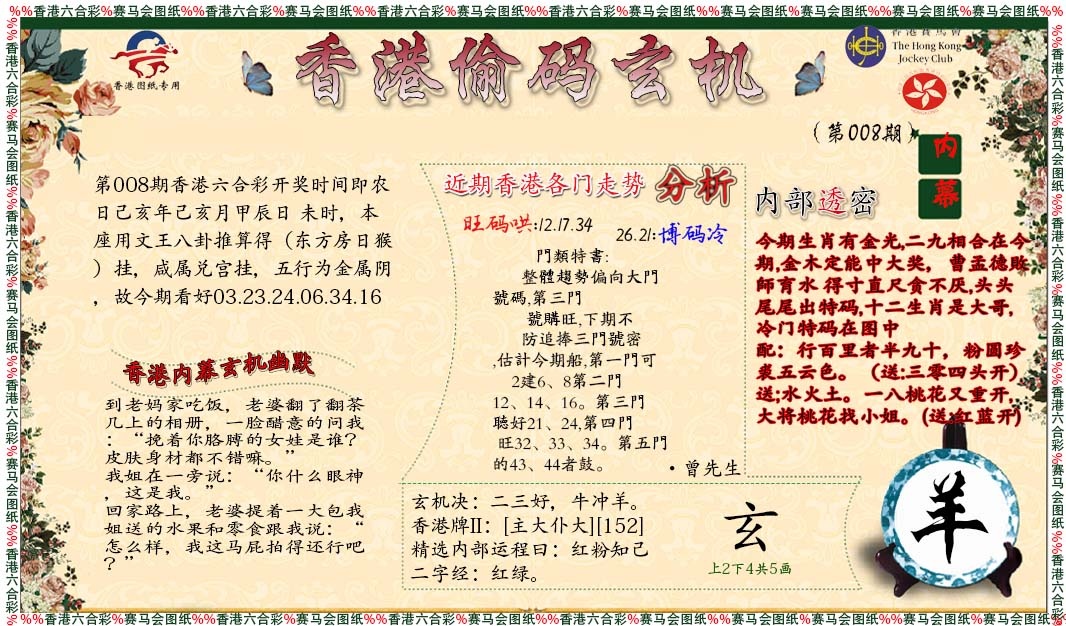 %%香港六合彩%赛马会图纸%%香港六合彩%赛马会图纸%%香港六合彩%赛马会图纸%%香港六合彩%赛马会图纸%%香港六合彩%赛马会图纸%%香港六合彩%赛马会图纸
香港图纸专用
香港偷码玄机
香港賽馬會
The Hong Kong
Jockey Club
(第008期)
内幕
第008期香港六合彩开奖时间即农
日己亥年己亥月甲辰日 未时，本
座用文王八卦推算得（东方房日猴
）挂，咸属兑宫挂，五行为金属阴
，故今期看好03.23.24.06.34.16
香港内幕玄机幽默
到老妈家吃饭，老婆翻了翻茶
几上的相册，一脸醋意的问我
：“挽着你胳膊的女娃是谁？
皮肤身材都不错嘛。”
我姐在一旁说：“你什么眼神
，这是我。”
回家路上，老婆提着一大包我
姐送的水果和零食跟我说：“
怎么样，我这马屁拍得还行吧
？”
近期香港各门走势 分析
旺码哄:12.17.34
26.21:博码冷
門類特書:
整體趨勢偏向大門
號碼,第三門
號購旺,下期不
防追捧三門號密
,估計今期船,第一門可
2建6、8第二門
12、14、16。第三門
聽好21、24,第四門
旺32、33、34。第五門
的43、44者鼓。
·曾先生
内部透密
今期生肖有金光,二九相合在今
期,金木定能中大奖， 曹孟德败
師育水 得寸直尺食不厌,头头
尾尾出特码,十二生肖是大哥,
冷门特码在图中
配：行百里者半九十，粉圆珍
裘五云色。（送:三零四头开）
送;水火土。一八桃花又重开,
大将桃花找小姐。(送:红蓝开)
玄机决：二三好，牛冲羊。
香港牌II：[主大仆大][152]
精选内部运程曰：红粉知己
二字经：红绿。
玄
上2下4共5画
羊
%%香港六合彩%赛马会图纸%%香港六合彩%赛马会图纸%%香港六合彩%赛马会图纸%%香港六合彩%赛马会图纸%%香港六合彩%赛马会图纸%%香港六合彩%赛马会图纸